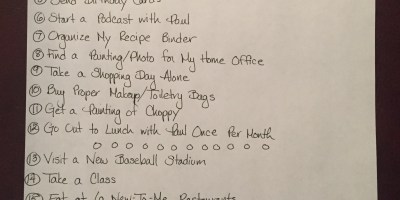 ⑤ Send Birthday Cards
⑥ Start a Podcast with Paul
⑦ Organize My Recipe Binder
⑧ Find a Painting/Photo for My Home Office
⑨ Take a Shopping Day Alone
⑩ Buy Proper Makeup/Toiletry Bags
⑪ Get a Painting of Choppy
⑫ Go Out to Lunch with Paul Once Per Month
⑬ Visit a New Baseball Stadium
⑭ Take a Class
⑮ Eat at 6 New-To-Me Restaurants